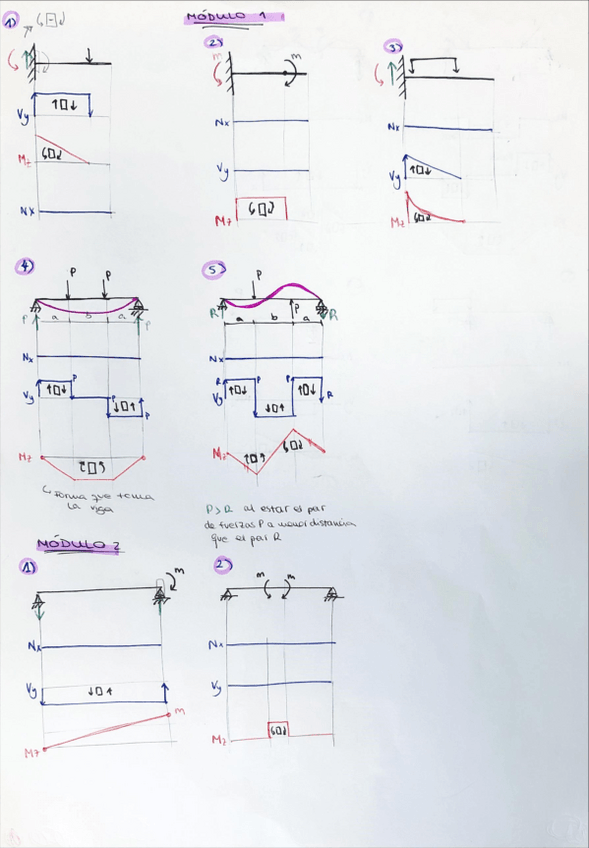 MÓDULO 1
1)
Vy
Mz
Nx
2)
m
m
Nx
Vy
Mz
3)
Nx
Vy
Mz
4)
P
P
P
a
b
a
P
Nx
Vy
P
P
P
Mz
↳ forma que toma
la viga
5)
P
R
P
R
a
b
a
Nx
R
P
P
Vy
R
Mz
P>R al estar el par
de fuerzas P a menor distancia
que el par R
MÓDULO 2
1)
m
Nx
Vy
m
Mz
2)
m
m
Nx
Vy
Mz